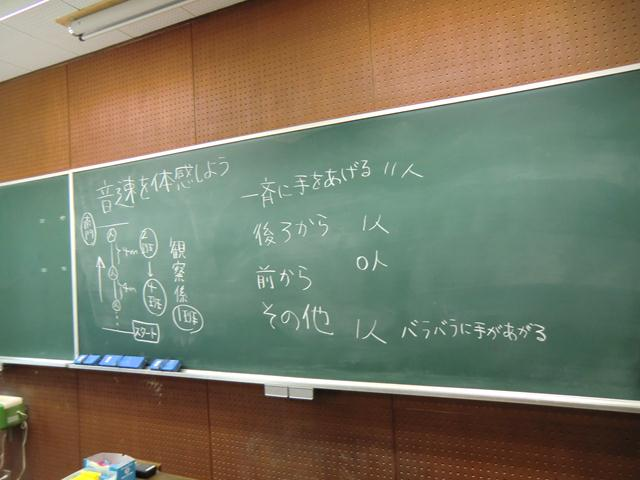 音速を体感しよう
人
4m
人
4m
人
スタート
2班
4班
観察係
1班
一斉に手をあげる 11人
後ろから 1人
前から 0人
その他 1人 バラバラに手があがる